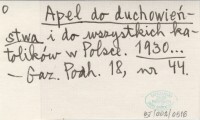 o
Apel do duchowień-
stwa i do wszystkich ka-
tolików w Polsce. 1930...
— Gaz. Podh. 18, nr 44.